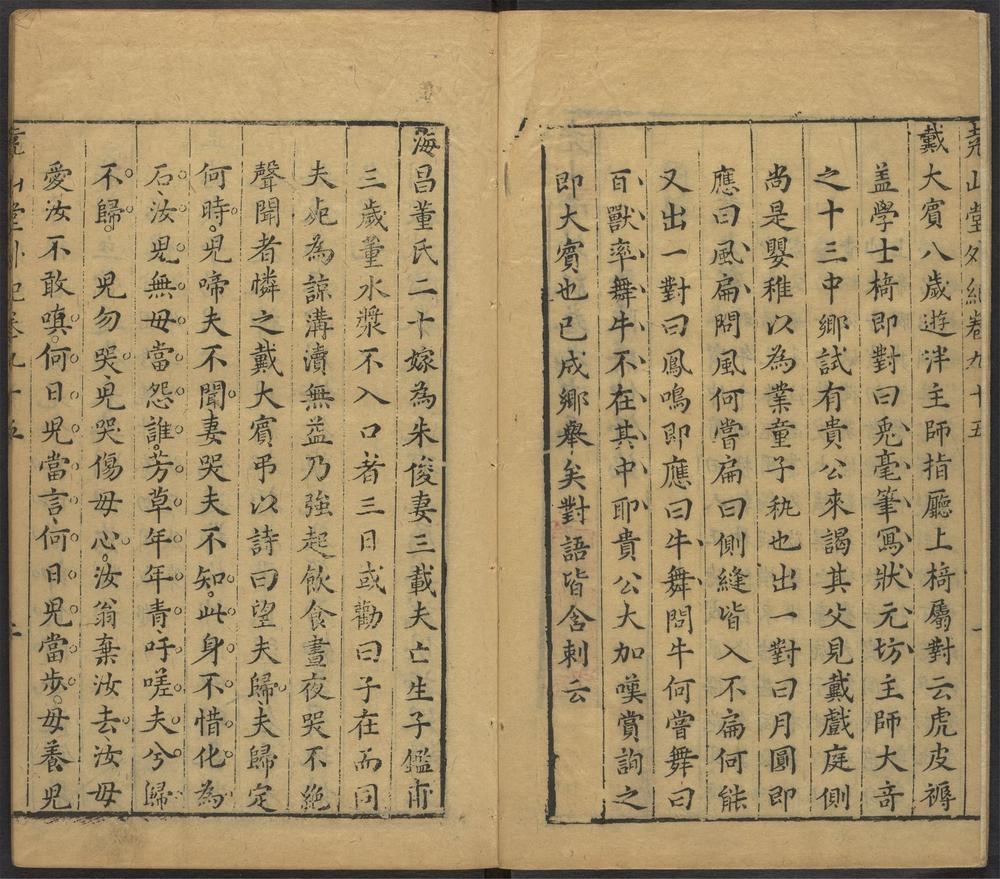 堯山堂外紀卷九十五
戴大賓八歲遊泮主師指廳上椅屬對云虎皮褥
盖學士椅即對曰兎毫筆寫狀元坊主師大奇
之十三中鄉試有貴公來謁其父見戴戲庭側
尚是嬰稚以為業童子秇也出一對曰月圓即
應曰風扁問風何嘗扁曰側縫皆入不扁何能
又出一對曰鳳鳴即應曰牛舞問牛何嘗舞曰
百獸率舞牛不在其中耶貴公大加嘆賞詢之
即大賓也已成鄉舉矣對語皆含刺云
海昌董氏二十嫁為朱俊妻三載夫亡生子鑑甫
三歲董水漿不入口者三日或勸曰子在而同
夫死為諒溝瀆無益乃強起飲食晝夜哭不絕
聲聞者憐之戴大賓弔以詩曰望夫歸夫歸定
何時兒啼夫不聞妻哭夫不知此身不惜化為
石汝兒無母當怨誰芳草年年青吁嗟夫兮歸
不歸兒勿哭兒哭傷母心汝翁棄汝去汝母
愛汝不敢嗔何日兒當言何日兒當步母養兒
堯山堂外紀卷九十五